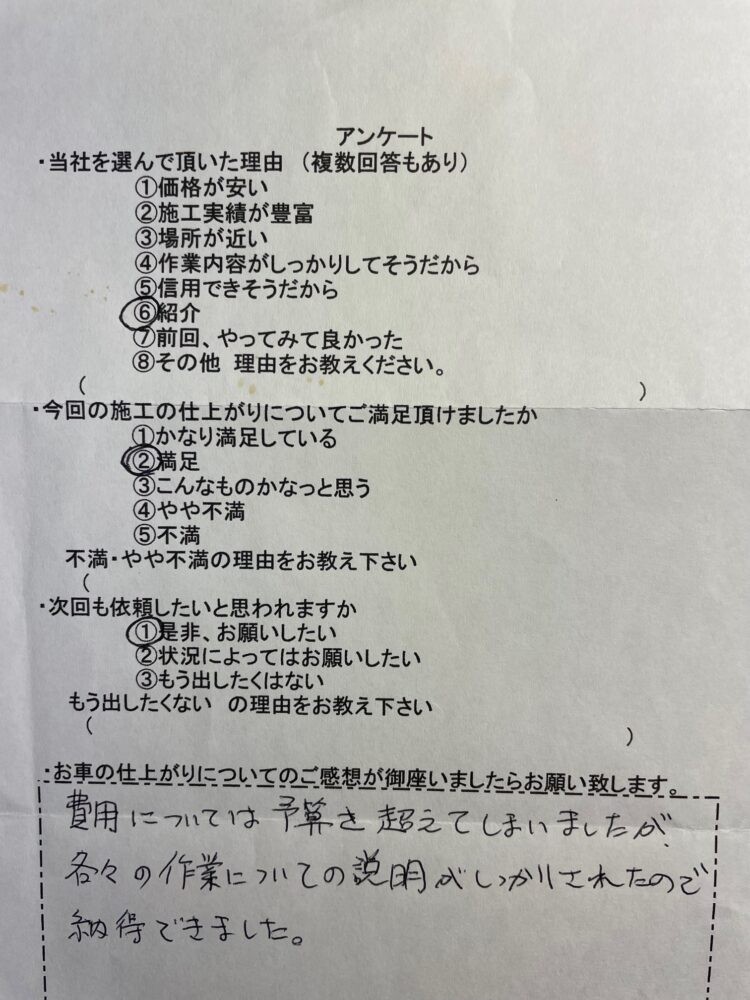 アンケート
・当社を選んで頂いた理由 （複数回答もあり）
①価格が安い
②施工実績が豊富
③場所が近い
④作業内容がしっかりしてそうだから
⑤信用できそうだから
⑥紹介
⑦前回、やってみて良かった
⑧その他 理由をお教えください。
（ ）
・今回の施工の仕上がりについてご満足頂けましたか
①かなり満足している
②満足
③こんなものかなっと思う
④やや不満
⑤不満
不満・やや不満の理由をお教え下さい
（
・次回も依頼したいと思われますか
①是非、お願いしたい
②状況によってはお願いしたい
③もう出したくはない
もう出したくない の理由をお教え下さい
（ ）
・お車の仕上がりについてのご感想が御座いましたらお願い致します。
費用については予算を超えてしまいましたが、
各々の作業についての説明がしっかりされたので
納得できました。